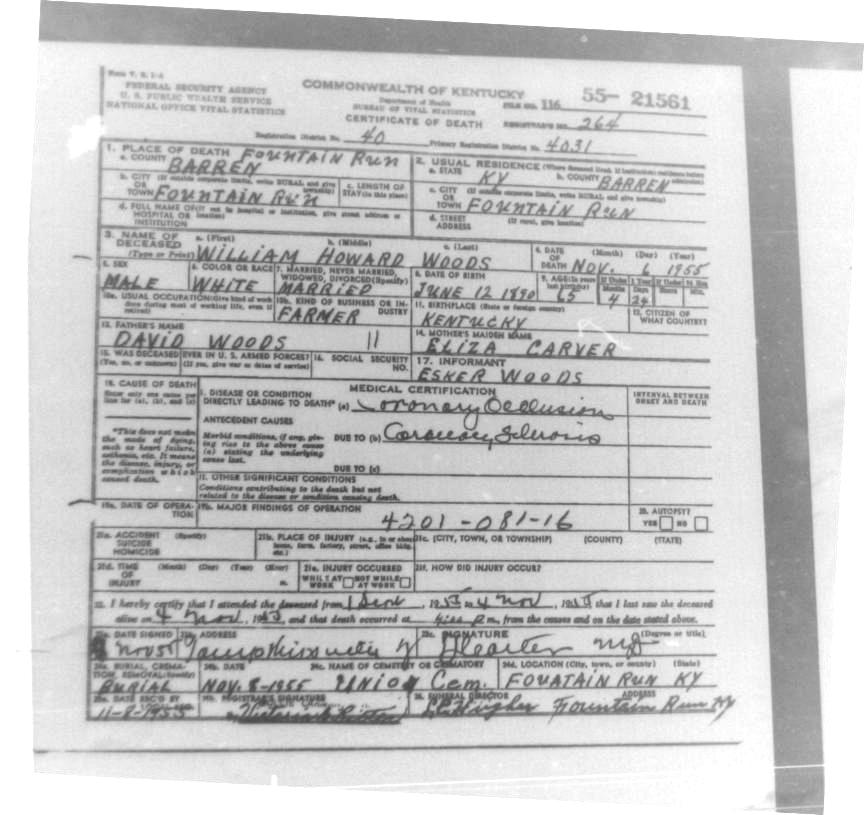 Form V. S. 1-A
FEDERAL SECURITY AGENCY
U. S. PUBLIC HEALTH SERVICE
NATIONAL OFFICE VITAL STATISTICS
COMMONWEALTH OF KENTUCKY
Department of Health
BUREAU OF VITAL STATISTICS
CERTIFICATE OF DEATH
FILE NO. 116 55- 21561
REGISTRAR'S NO. 264
Registration District No. 40 Primary Registration District No. 4031
1. PLACE OF DEATH FOUNTAIN RUN
a. COUNTY BARREN
2. USUAL RESIDENCE (Where deceased lived. If institution: residence before admission)
a. STATE KY b. COUNTY BARREN
b. CITY (If outside corporate limits, write RURAL and give township)
OR TOWN FOUNTAIN RUN
c. LENGTH OF STAY (in this place)
c. CITY (If outside corporate limits, write RURAL and give township)
OR TOWN FOUNTAIN RUN
d. FULL NAME OF (If not in hospital or institution, give street address or location)
HOSPITAL OR INSTITUTION
d. STREET ADDRESS (If rural, give location)
3. NAME OF DECEASED (Type or Print)
a. (First) b. (Middle) c. (Last)
WILLIAM HOWARD WOODS
4. DATE OF DEATH (Month) (Day) (Year)
NOV. 6 1955
5. SEX
MALE
6. COLOR OR RACE
WHITE
7. MARRIED, NEVER MARRIED, WIDOWED, DIVORCED (Specify)
MARRIED
8. DATE OF BIRTH
JUNE 12 1890
9. AGE (In years last birthday) 65
If Under 1 Year Months 4 Days 24
If Under 24 Hrs. Hours Min.
10a. USUAL OCCUPATION (Give kind of work done during most of working life, even if retired)
10b. KIND OF BUSINESS OR INDUSTRY
FARMER
11. BIRTHPLACE (State or foreign country)
KENTUCKY
12. CITIZEN OF WHAT COUNTRY?
13. FATHER'S NAME
DAVID WOODS 11
14. MOTHER'S MAIDEN NAME
ELIZA CARVER
15. WAS DECEASED EVER IN U. S. ARMED FORCES?
(Yes, no, or unknown) (If yes, give war or dates of service)
16. SOCIAL SECURITY NO.
17. INFORMANT
ESKER WOODS
18. CAUSE OF DEATH
Enter only one cause per line for (a), (b), and (c)
MEDICAL CERTIFICATION
INTERVAL BETWEEN ONSET AND DEATH
I. DISEASE OR CONDITION
DIRECTLY LEADING TO DEATH* (a) Coronary Occlusion
ANTECEDENT CAUSES
Morbid conditions, if any, giving rise to the above cause (a) stating the underlying cause last.
DUE TO (b) Coronary Sclerosis
DUE TO (c)
*This does not mean the mode of dying, such as heart failure, asthenia, etc. It means the disease, injury, or complication which caused death.
II. OTHER SIGNIFICANT CONDITIONS
Conditions contributing to the death but not related to the disease or condition causing death.
19a. DATE OF OPERATION
19b. MAJOR FINDINGS OF OPERATION
4201-081-16
20. AUTOPSY?
YES NO
21a. ACCIDENT SUICIDE HOMICIDE (Specify)
21b. PLACE OF INJURY (e.g., in or about home, farm, factory, street, office bldg., etc.)
21c. (CITY, TOWN, OR TOWNSHIP) (COUNTY) (STATE)
21d. TIME OF INJURY (Month) (Day) (Year) (Hour) m.
21e. INJURY OCCURRED
WHILE AT WORK NOT WHILE AT WORK
21f. HOW DID INJURY OCCUR?
22. I hereby certify that I attended the deceased from 1 Sept, 1955 to 4 Nov, 1955 that I last saw the deceased
alive on 4 Nov, 1955, and that death occurred at m., from the causes and on the date stated above.
23a. DATE SIGNED
Nov 55
23b. ADDRESS
23c. SIGNATURE (Degree or title)
MD
24a. BURIAL, CREMATION, REMOVAL (Specify)
BURIAL
24b. DATE
NOV. 8-1955
24c. NAME OF CEMETERY OR CREMATORY
UNION Cem.
24d. LOCATION (City, town, or county) (State)
FOUATAIN RUN KY
25a. DATE REC'D BY LOCAL REG.
11-8-1955
25b. REGISTRAR'S SIGNATURE
26. FUNERAL DIRECTOR ADDRESS
Fountain Run Ky